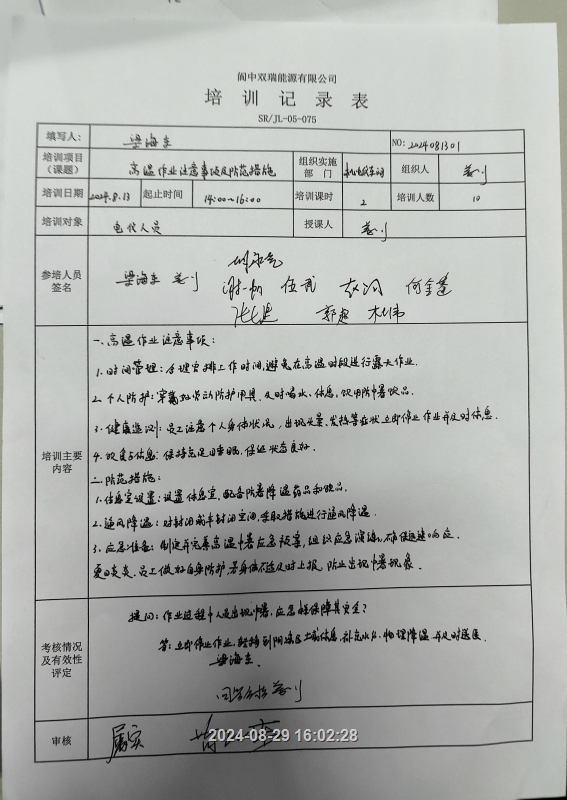 阆中双瑞能源有限公司
培训记录表
SR/JL-05-075
填写人: 梁海东 NO: 2024081301
培训项目(课题) 高温作业注意事项及防范措施 组织实施部门 机电仪车间 组织人
培训日期 2024.8.13 起止时间 14:00~16:00 培训课时 2 培训人数 10
培训对象 电仪人员 授课人
参培人员签名
梁海东 伍武 何金蓬
郭超
培训主要内容
一.高温作业注意事项:
1.时间管理:合理安排工作时间,避免在高温时段进行露天作业.
2.个人防护:穿戴好劳动防护用具,及时喝水、休息,饮用防中暑饮品.
3.健康监测:员工注意个人身体状况,出现头晕、发热等症状立即停止作业并及时休息.
4.饮食与休息:保持充足睡眠,保证状态良好.
二.防范措施:
1.休息室设置:设置休息室,配备防暑降温药品和饮品.
2.通风降温:对封闭或半封闭空间,采取措施进行通风降温.
3.应急准备:制定并完善高温中暑应急预案,组织应急演练,确保迅速响应.
夏日炎炎,员工做好自身防护,若身体不适及时上报,防止出现中暑现象.
考核情况及有效性评定
提问:作业过程中人员出现中暑,应怎样保障其安全?
答:立即停止作业,转移到阴凉区域休息,补充水分,物理降温并及时送医.
梁海东.
回答合格
审核 属实
2024-08-29 16:02:28